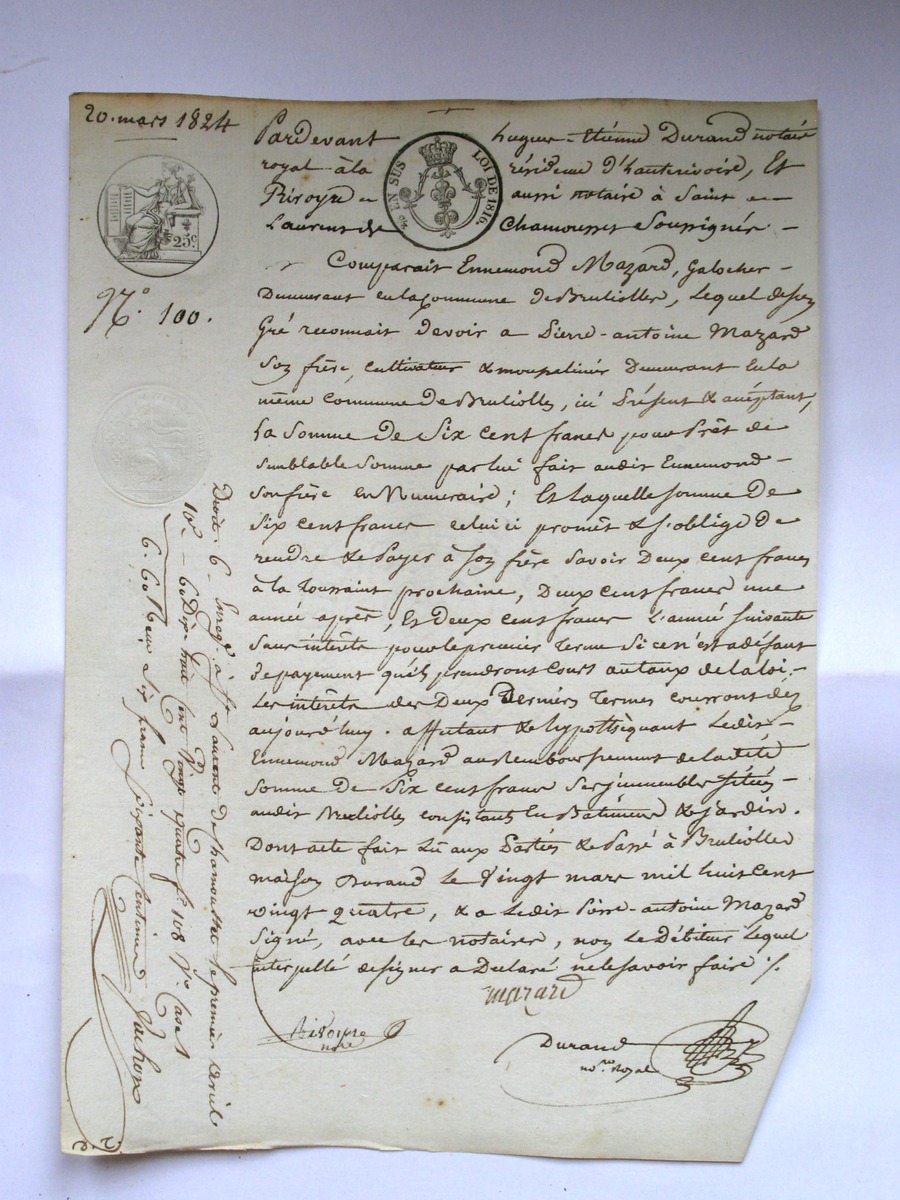 20. mars 1824
Pardevant hugues-Etienne Durand notaire
royal à la résidence d'hauterivoire, Et
Rivoyre aussi notaire à Saint
Laurent de Chamousset Soussignés -
EN SUS LOI DE 1816.
25c.
N.° 100.
Comparait Ennemond Mazard, Galocher -
Demeurant en la Commune de Brullioles, Lequel de son
Gré reconnait devoir a Pierre-antoine Mazard
Son frère, cultivateur & Demeurant En la
même Commune de Brullioles, ici Présent & acceptant,
La Somme De Six cent francs pour Prêt de
Semblable Somme par lui fait audit Ennemond -
Son frère en Numeraire; Et Laquelle somme De
Six cent francs celui ci promêt & s'oblige De
rendre & de Payer à son frère Savoir Deux cent francs
à la toussaint prochaine, Deux cent francs une
année après, Et Deux cent francs L'année Suivante
Sans intérêts pour le premier Terme Si ce n'est a défaut
De payement qu'ils prendront Cours au taux de la loi,
Les intérêts des Deux Derniers termes courront dès
aujourd'huy. affectant & hypothéquant Ledit -
Ennemond Mazard au Remboursement de la dite
Somme De Six cent francs Ses immeubles situés -
audit Brullioles consistants En Bâtiment & jardin.
Dont acte fait Lu aux Parties & Passé à Brullioles
maison Durand Le Vingt mars mil huit cent
vingt quatre, & a Ledit Pierre-antoine Mazard
Signé, avec les notaires, non Le Débiteur Lequel
interpellé de signer a Declaré ne le savoir faire ./.
mazard
Rivoyre
nore
Durand
nore Royal
Droit. 6- Enreg.é à St Laurent De Chamousset le premier avril
10e - 60 Dix huit Cent Vingt quatre f.° 108 V.° Case 1
6. 60 Reçu Six francs soixante centimes